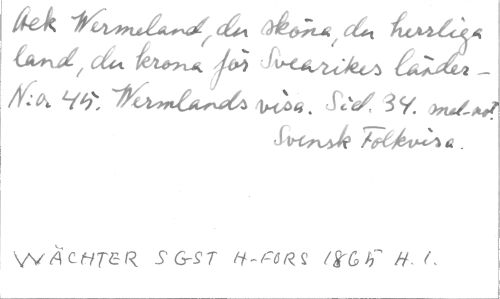 Ack Wermeland, du sköna, du herrliga
land, du krona för Svearikes länder –
N:o 45. Wermlands visa. Sid. 34. mel-not.
Svensk Folkvisa.
WÄCHTER SGST H-FORS 1865 H. 1.